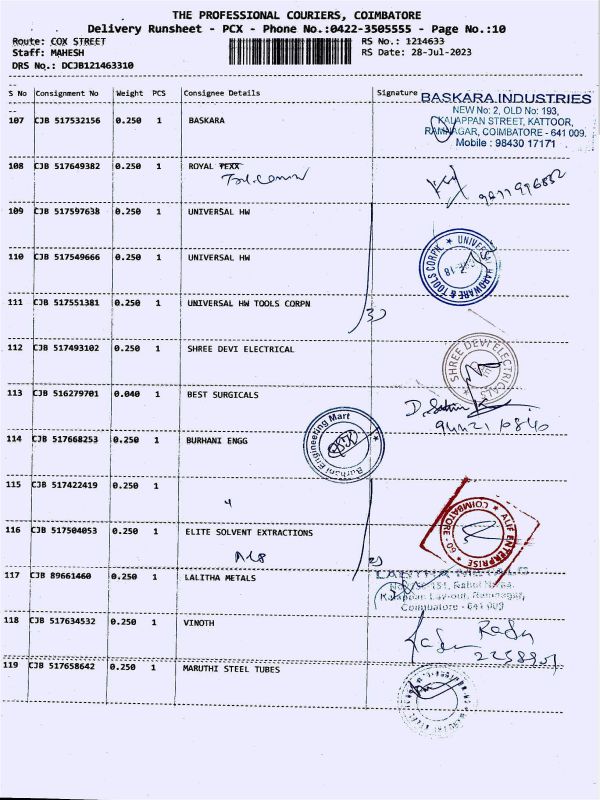 THE PROFESSIONAL COURIERS, COIMBATORE
Delivery Runsheet - PCX - Phone No.:0422-3505555 - Page No.:10
Route: COX STREET RS No.: 1214633
Staff: MAHESH RS Date: 28-Jul-2023
DRS No.: DCJB121463310
S No Consignment No Weight PCS Consignee Details Signature
BASKARA INDUSTRIES
NEW No: 2, OLD No: 193,
KALAPPAN STREET, KATTOOR,
RAMNAGAR, COIMBATORE - 641 009.
Mobile : 98430 17171
107 CJB 517532156 0.250 1 BASKARA
108 CJB 517649382 0.250 1 ROYAL TEXX
109 CJB 517597638 0.250 1 UNIVERSAL HW
110 CJB 517549666 0.250 1 UNIVERSAL HW
UNIVERSAL HARDWARE & TOOLS CORPN.
111 CJB 517551381 0.250 1 UNIVERSAL HW TOOLS CORPN
112 CJB 517493102 0.250 1 SHREE DEVI ELECTRICAL
SHREE DEVI ELECTRICALS
113 CJB 516279701 0.040 1 BEST SURGICALS
114 CJB 517668253 0.250 1 BURHANI ENGG
Burhani Engineering Mart
115 CJB 517422419 0.250 1
116 CJB 517504053 0.250 1 ELITE SOLVENT EXTRACTIONS
ALIF ENTERPRISE
COIMBATORE
117 CJB 89661460 0.250 1 LALITHA METALS
Coimbatore - 641 009
118 CJB 517634532 0.250 1 VINOTH
119 CJB 517658642 0.250 1 MARUTHI STEEL TUBES